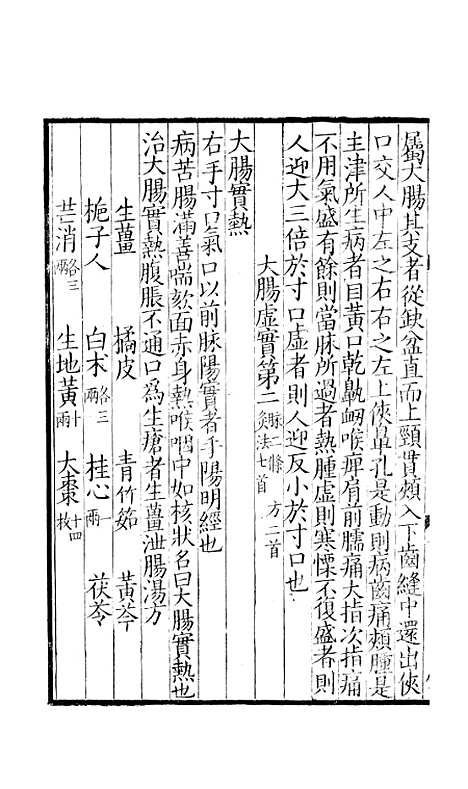 屬大腸其支者從缺盆直而上頸貫頰入下齒縫中還出俠
口交人中左之右右之左上俠鼻孔是動則病齒痛頰腫是
主津所生病者目黃口乾鼽衂喉痺肩前臑痛大指次指痛
不用氣盛有餘則當脉所過者熱腫虛則寒慄不復盛者則
人迎大三倍於寸口虛者則人迎反小於寸口也
大腸虛實第二脉二條 方二首 灸法七首
大腸實熱
右手寸口氣口以前脉陽實者手陽明經也
病苦腸滿善喘欬面赤身熱喉咽中如核狀名曰大腸實熱也
治大腸實熱腹脹不通口為生瘡者生薑泄腸湯方
生薑 橘皮 青竹筎 黃芩
梔子人 白术各三兩 桂心一兩 茯苓
芒消各三兩 生地黃十兩 大棗十四枚